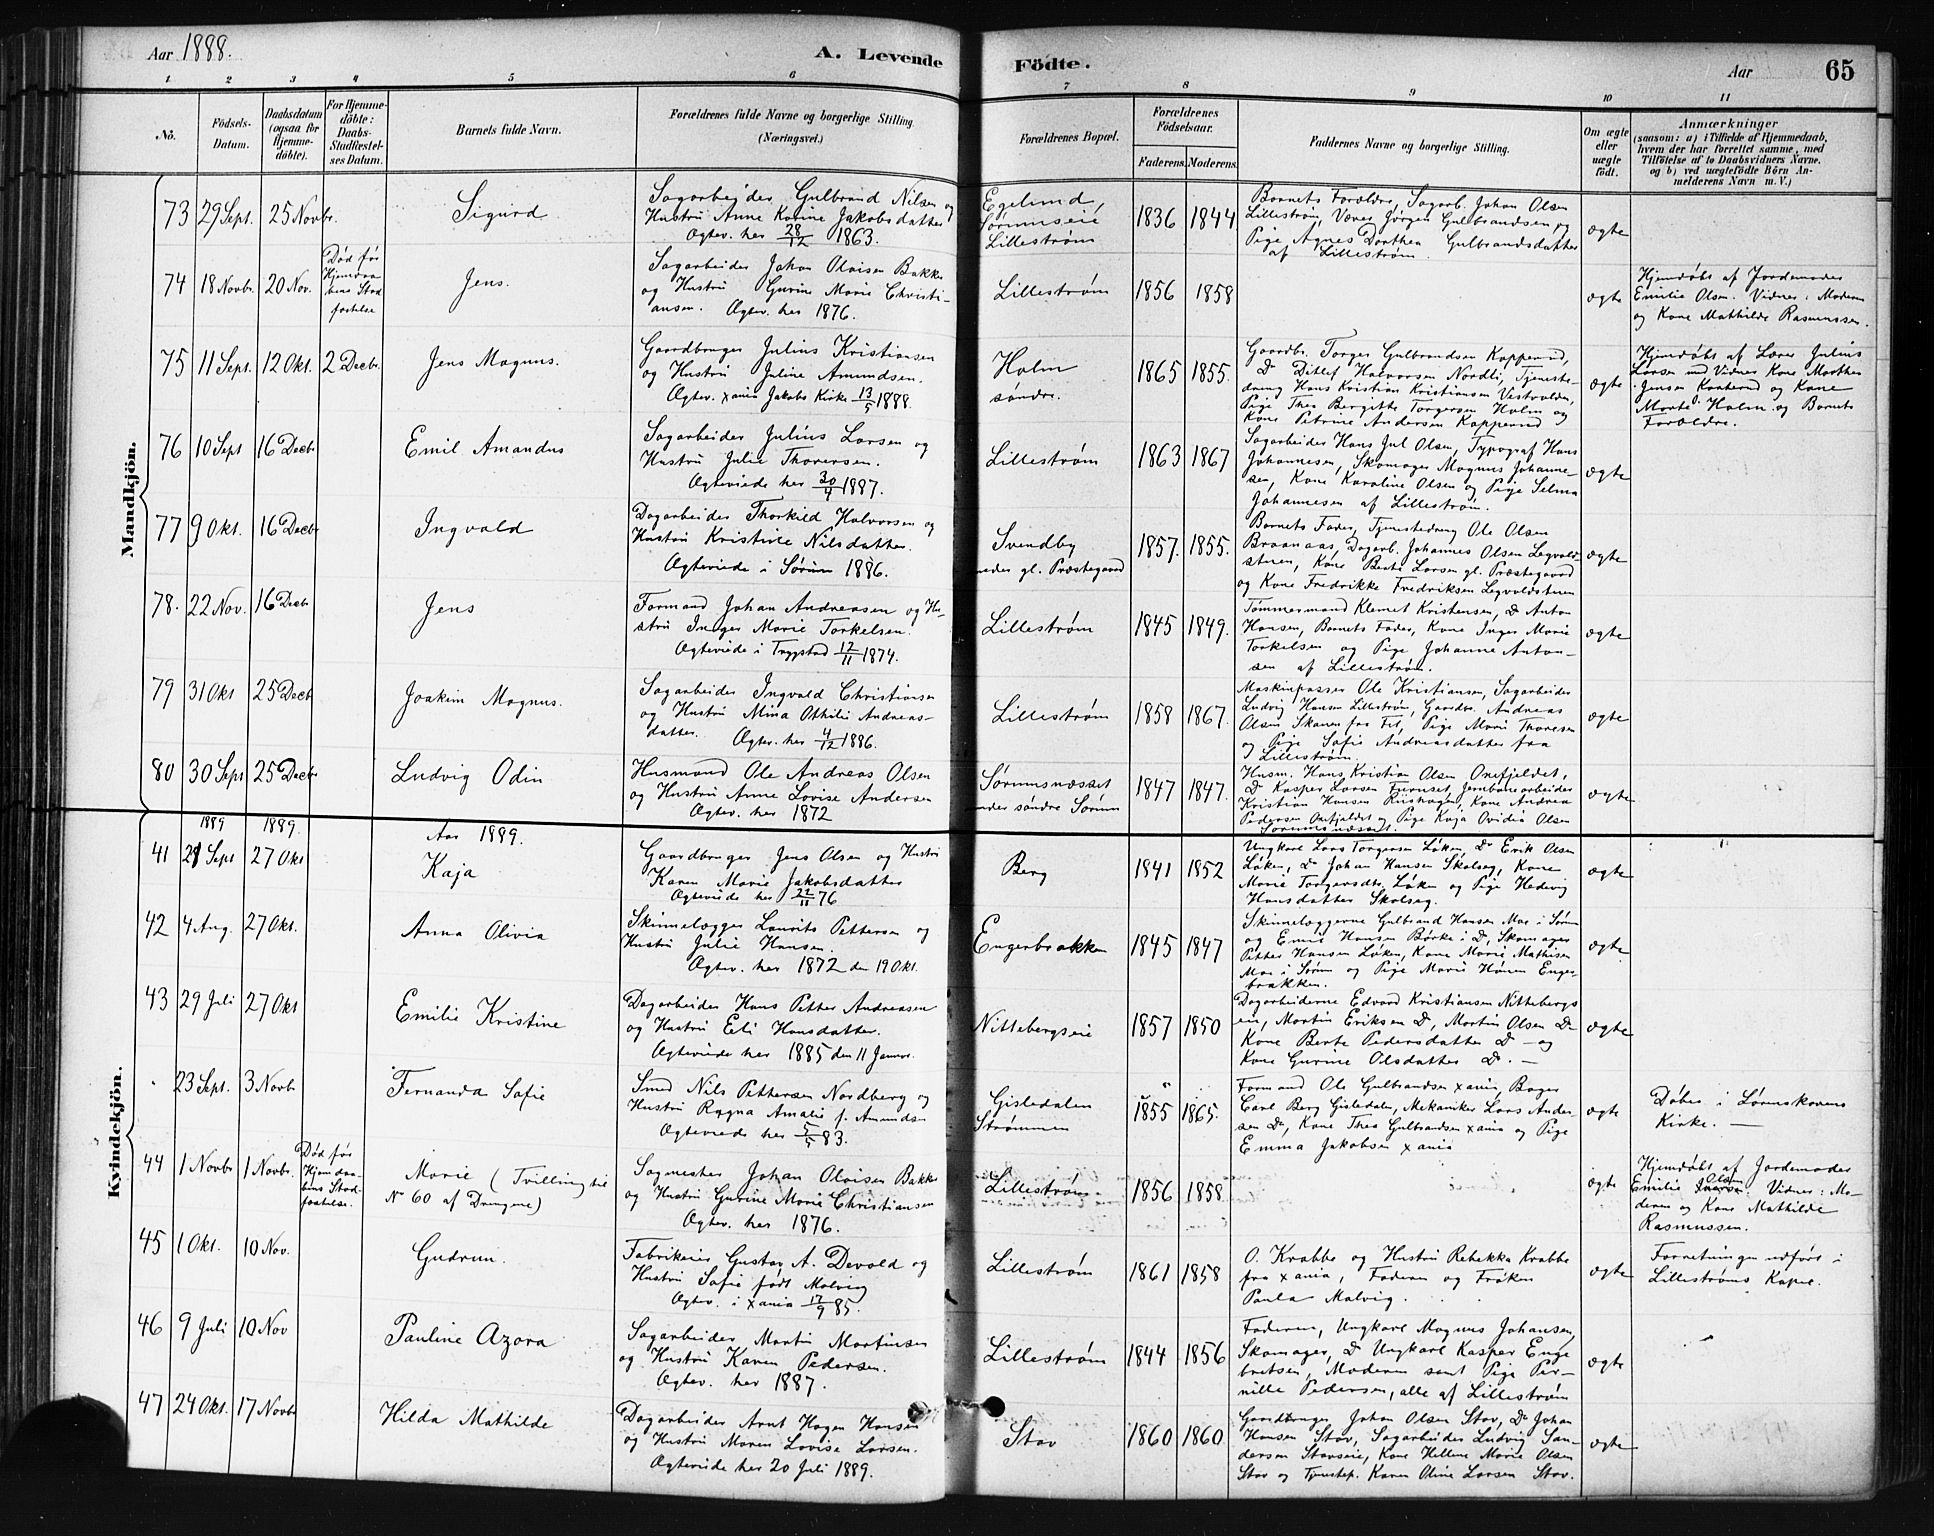 Aar 1888.
A. Levende Födte.
Aar
65
1 2 3 4 5 6 7 8 9 10 11
No.
Födsels-Datum.
Daabsdatum (ogsaa for Hjemme-döbte).
For Hjemme-döbte: Daabs-Stadfæstel-ses Datum.
Barnets fulde Navn.
Forældrenes fulde Navne og borgerlige Stilling. (Næringsvei.)
Forældrenes Bopæl.
Forældrenes Födselsaar.
Faderens. Moderens.
Faddernes Navne og borgerlige Stilling.
Om ægte eller uægte født.
Anmærkninger
(saasom: a) i Tilfælde af Hjemmedaab, hvem der har forrettet samme, med Tilföielse af to Daabsvidners Navne. og b) ved uægtefödte Börn An-melderens Navn m. V.)
Mandkjön.
73 29 Sept. 25 Novbr.
Sigurd
Sagarbeider Gulbrand Nilsen og
Hustru Anne Karine Jakobsdatter
Ægtev. her 28/12 1863.
Egelund,
Sørumseie
Lillestrøm
1836 1844
Barnets Forældre, Sagarb. Johan Olsen
Lillestrøm, Væver Jørgen Gulbrandsen og
Pige Agnes Dorthea Gulbrandsdatter
af Lillestrøm.
ægte
74 18 Novbr. 20 Nov.
Død før
Hjemdaa
bens Stad
fæstelse
Jens.
Sagarbeider Johan Oloisen Bakke
og Hustru Gurine Marie Christi-
ansen. Ægtev. her 1876.
Lillestrøm
1856 1858
ægte
Hjemdøbt af Jordemoder
Emilie Olsen. Vidner: Moderen
og Kone Mathilde Rasmussen.
75 11 Sept. 12 Okt. 2 Decbr.
Jens Magnus.
Gaardbruger Julius Kristiansen
og Hustru Juline Amundsen.
Ægtev. Xania Jakobs Kirke 13/5 1888.
Holm
søndre.
1865 1855.
Gaardbr. Torger Gulbrandsen Kopperud,
Do Ditlef Halvorsen Nordli, Tjeneste-
dreng Hans Kristian Kristiansen Vestvolden,
Pige Thea Bergitte Torgersen Holm og
Kone Petrine Andersen Kopperud
ægte
Hjemdøbt af Lærer Julius
Larsen med Vidner Kone Marthea
Jensen og Kone
Marte Holm og Barnets
Forældre.
76 10 Sept 16 Decbr
Emil Amandus
Sagarbeider Julius Larsen og
Hustru Julie Thoresen.
Ægteviede her 30/4 1887.
Lillestrøm
1863 1867
Sagarbeider Hans Jul Olsen, Typograf Hans
Johannesen, Skomager Magnus Johanne-
sen, Kone Karoline Olsen og Pige Selma
Johannesen af Lillestrøm.
ægte
77 9 Okt. 16 Decbr
Ingvald
Dagarbeider Thorkild Halvorsen og
Hustru Kristine Nilsdatter.
Ægteviede i Sørum 1886.
Svendby
under gl. Præstegaard
1857. 1855.
Barnets Fader, Tjenestedreng Ole Olsen
Braanaas, Dagarb. Johannes Olsen Legvold-
stuen, Kone Berte Larsen gl. Præstegaard
og Kone Fredrikke Fredriksen Legvoldstuen
ægte
78. 22 Nov. 16 Decbr
Jens
Formand Johan Andreasen og Hu-
stru Inger Marie Torkelsen.
Ægteviede i Trygstad 12/11 1874.
Lillestrøm
1845 1849.
Tømmermand Klemet Kristensen, Do Anton
Hansen, Barnets Fader, Kone Inger Marie
Torkelsen og Pige Johanne Anton-
sen af Lillestrøm.
ægte
79 31 Okt 25 Decbr
Joakim Magnus.
Sagarbeider Ingvald Christiansen
og Hustru Mina Othilie Andreas-
datter. Ægtev. her 4/12 1886.
Lillestrøm
1858 1867.
Maskinpasser Ole Kristiansen, Sagarbeider
Ludvig Hansen Lillestrøm, Gaardbr. Andreas
Olsen Skaren fra Fet, Pige Marie Thoresen
og Pige Sofie Andreasdatter fra
Lillestrøm.
ægte
80 30 Sept 25 Decbr
Ludvig Odin
Husmand Ole Andreas Olsen
og Hustru Anne Lovise Andersen
Ægtev. her 1872
Sørumsnæsset
under søndre Sørum
1847 1847.
Husm. Hans Kristian Olsen Onefjeldet,
Do Kasper Larsen Furuset, Jernbanearbeider
Kristian Hansen Riishagen, Kone Andrea
Pedersen Onefjeldet og Pige Kaja Ovidia Olsen
Sørumsnæsset.
ægte
Kvindekjön.
1889 1889.
Aar 1889.
41 21 Sept 27 Okt
Kaja
Gaardbruger Jens Olsen og Hustru
Karen Marie Jakobsdatter
Ægteviede her 22/11 76
Berg
1841 1852
Ungkarl Lars Torgersen Løken, Do Erik Olsen
Løken, Do Johan Hansen Skolseg, Kone
Marie Torgersdtr. Løken og Pige Hedevig
Hansdatter Skolseg.
ægte
42 4 Aug. 27 Okt.
Anna Olivia
Skinnelægger Laurits Pettersen og
Hustru Julie Hansen.
Ægtev. her 1872 den 19 Okt.
Engerbrakken
1845 1847
Skinnelæggerne Gulbrand Hansen Moe i Sørum
og Emil Hansen Børke i Do, Skomager
Petter Hansen Løken, Kone Marie Mathisen
Moe i Sørum og Pige Marie Hansen Enger-
brakken.
ægte
43 29 Juli 27 Okt
Emilie Kristine
Dagarbeider Hans Petter Andreasen
og Hustru Eeli Hansdatter.
Ægteviede her 1885 den 11 Januar.
Nittebergseie
1857 1850
Dagarbeiderne Edvard Kristiansen Nittebergs
eie, Martin Eriksen Do, Martin Olsen Do
Kone Berte Pedersdatter Do — og
Kone Gurine Olsdatter Do. —
ægte
23 Sept. 3 Novbr
Fernanda Sofie
Smed Nils Pettersen Nordberg og
Hustru Ragna Amalie f. Amundsen
Ægteviede her 5/5 83.
Gisledalen
Strømmen
1855 1865.
Formand Ole Gulbrandsen Xania, Bager
Carl Berg Gisledalen, Mekaniker Lars Ander-
sen Do, Kone Thea Gulbrandsen Xania og Pige
Emma Jakobsen Xania
ægte
Døbes i Lørenskovens
Kirke. —
44 1 Novbr 1 Novbr.
Død før
Hjemdaa-
bens Stad-
fæstelse.
Marie (Tvilling til
No 60 af Drengene)
Sagmester Johan Oloisen Bakke
og Hustru Gurine Marie Christiansen
Ægtev. her 1876.
Lillestrøm
1856 1858.
ægte
Hjemdøbt af Jordemoder
Emilie Olsen. Vidner: Mo-
deren og Kone Mathilde
Rasmussen.
45 1 Okt. 10 Nov.
Gudrun.
Fabrikeier Gustav A. Devold og
Hustru Sofie født Malvig
Ægtev. i Xania 17/9 85.
Lillestrøm
1861 1858
O. Krabbe og Hustru Rebekka Krabbe
fra Xania, Faderen og Frøken
Paula Malvig.
ægte
Forretningen udført i
Lillestrøms Kapel.
46 9 Juli 10 Nov
Pauline Azora
Sagarbeider Martin Martinsen
og Hustru Karen Pedersen.
Ægtev. her 1887.
Lillestrøm
1844 1856
Faderen, Ungkarl Magnus Johansen,
Skomager, Do Ungkarl Kasper Enge
bretsen, Moderen samt Pige Per-
nille Pedersen, alle af Lillestrøm
ægte
47 24 Okt. 17 Novbr
Hilda Mathilde
Dagarbeider Arnt Hagen Hansen
og Hustru Maren Lovise Larsen.
Ægteviede her 20 Juli 1889.
Stav
1860 1860
Gaardbruger Johan Olsen Stav, Do Johan
Hansen Stav, Sagarbeider Ludvig San-
dersen Stavseie, Kone Hellene Marie Olsen
Stav og Tjenstep. Karen Oline Larsen Stav.
ægte